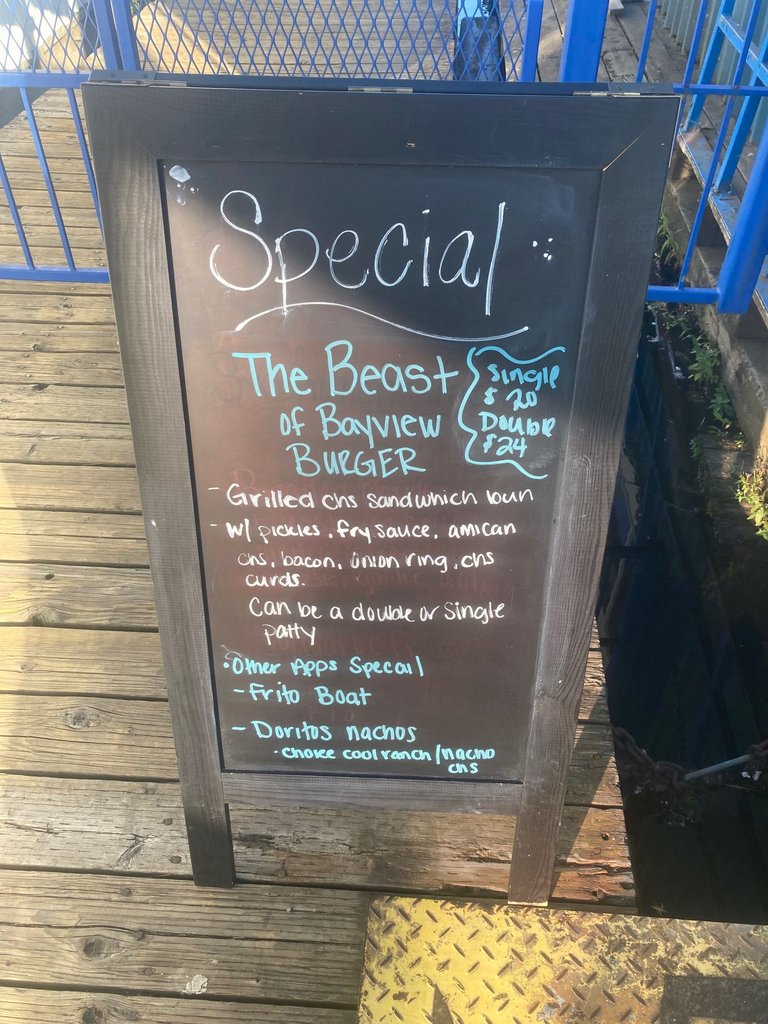 Special
The Beast
of Bayview
BURGER
Single
$ 20
Double
$24
- Grilled chs sandwhich bun
- w/ pickles, fry sauce, amican
chs, bacon, onion ring, chs
curds.
Can be a double or single
patty
• Other Apps Specail
- Frito Boat
- Doritos nachos
• choice cool ranch/nacho
chs